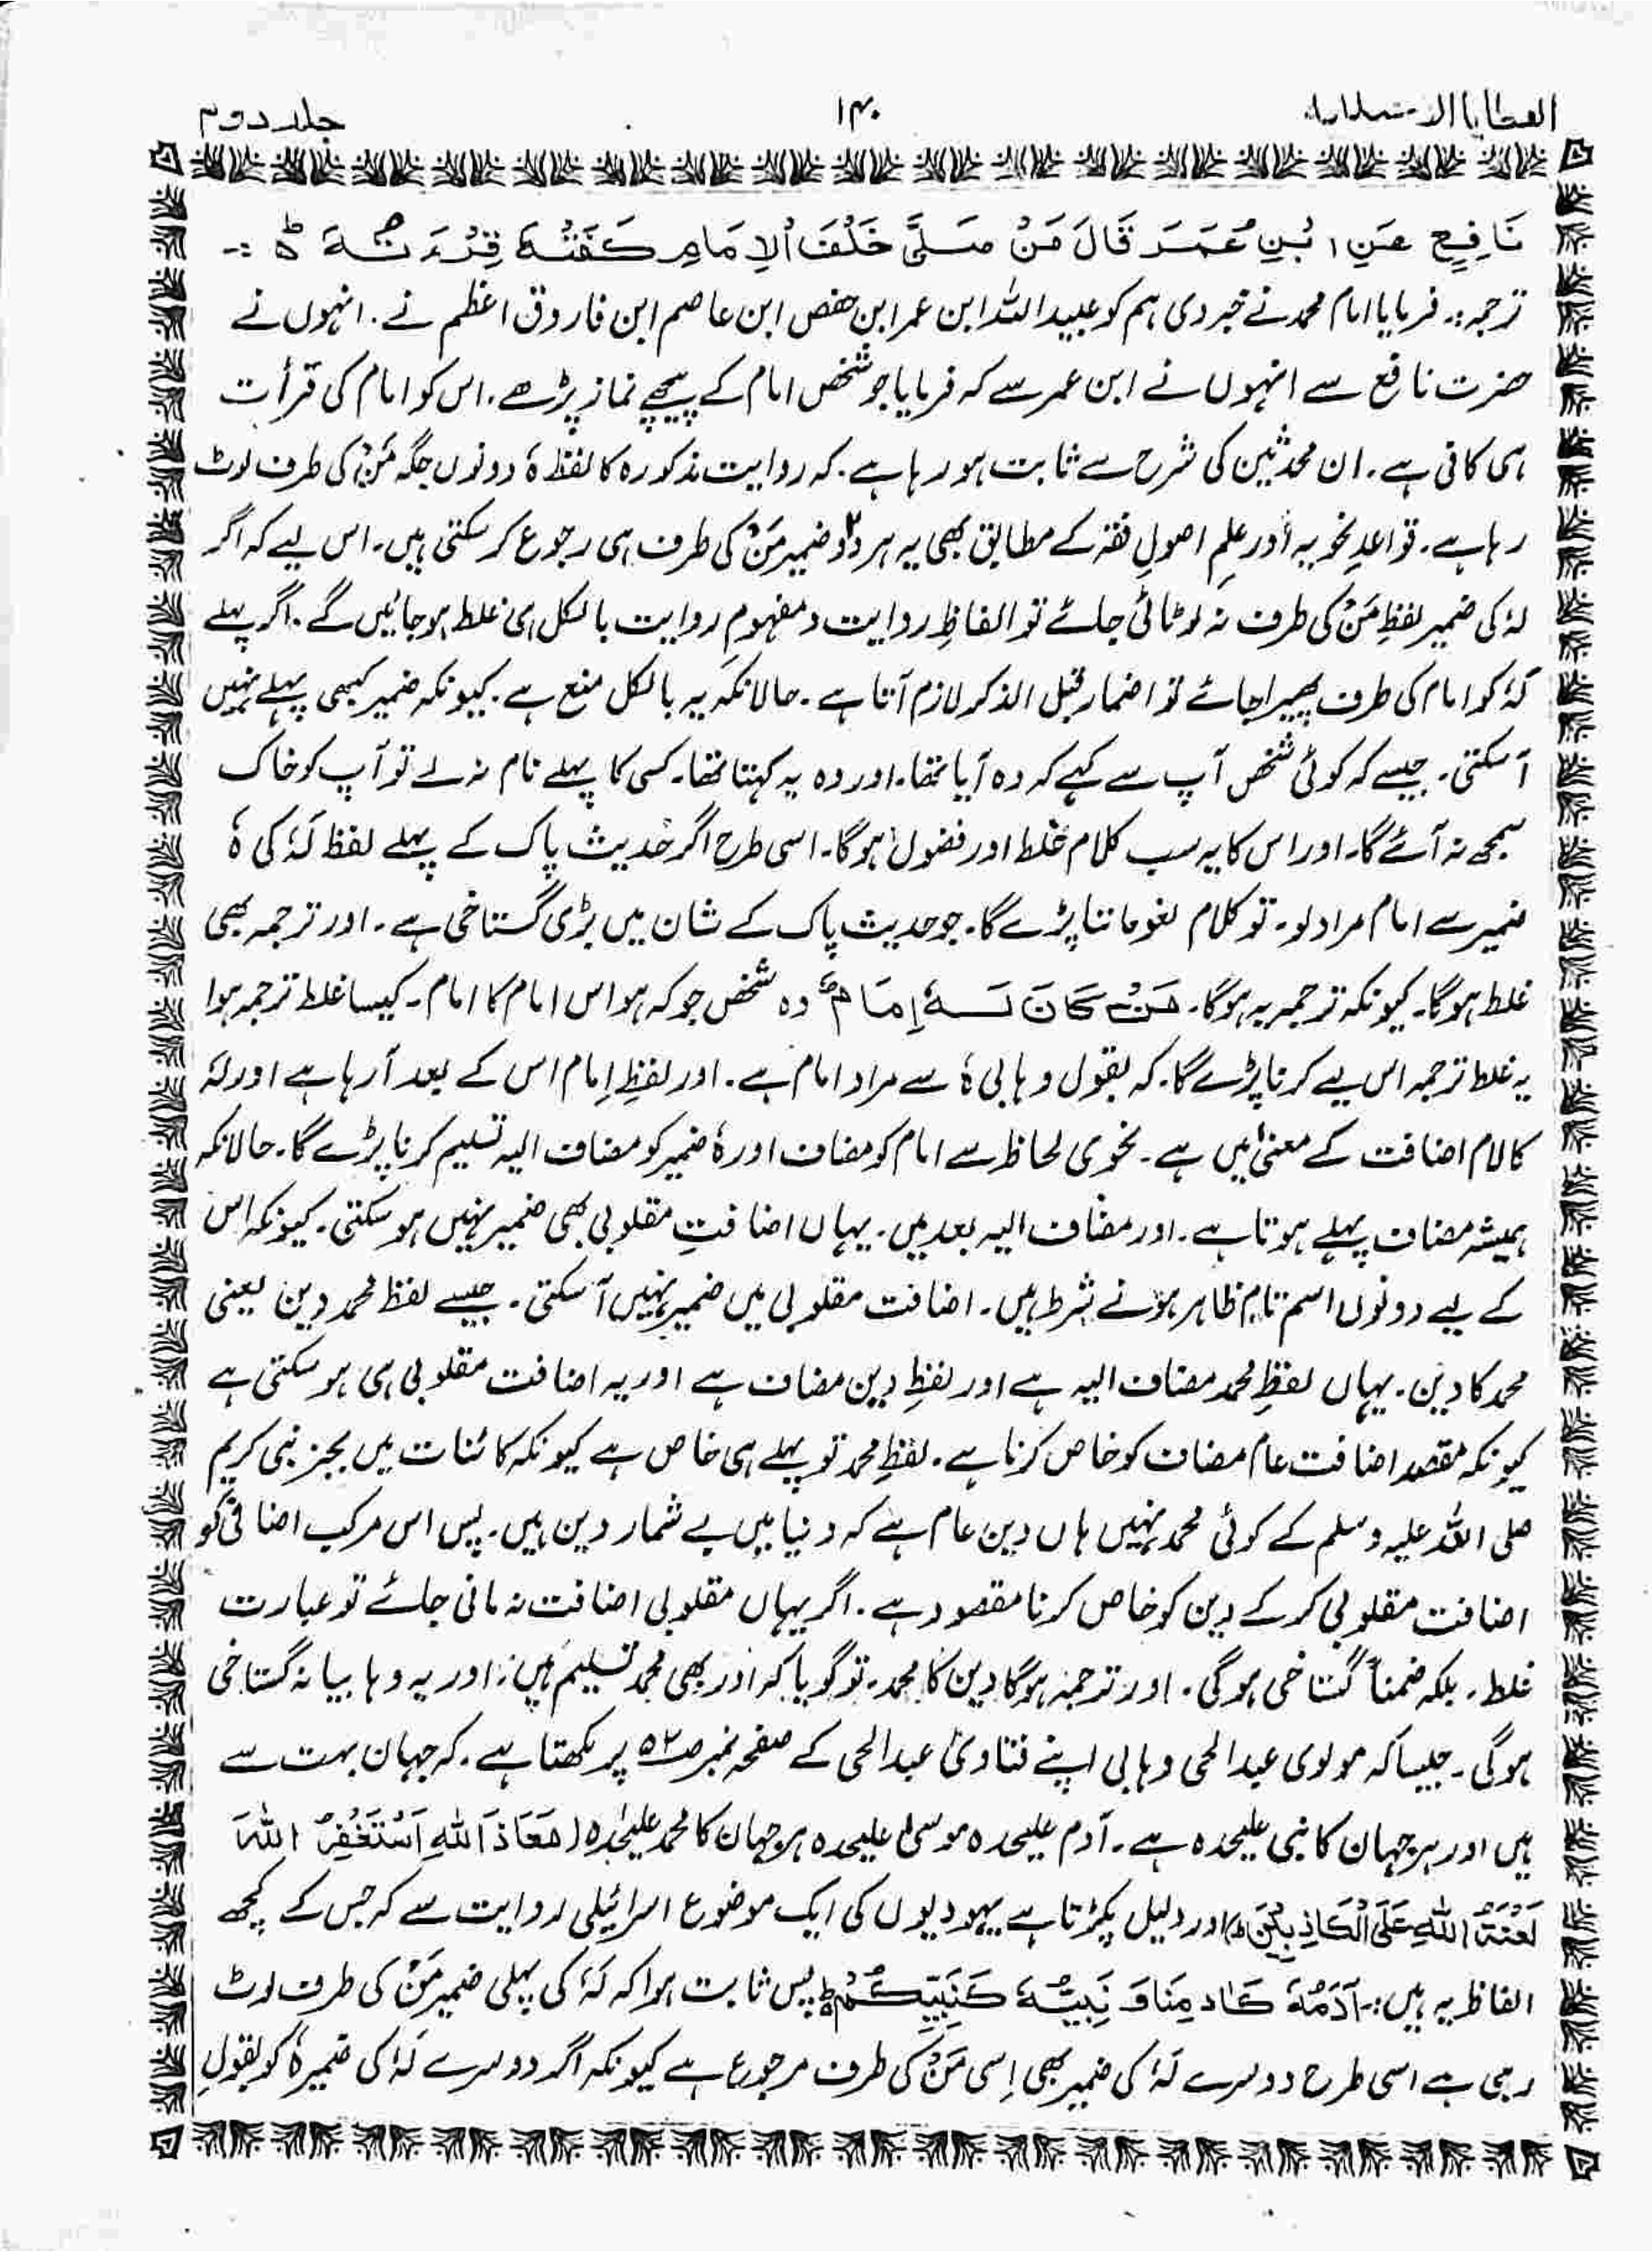 العطایا الاحمدیہ ۱۴۰ جلد دوم
نَافِعٍ عَنِ ابْنِ عُمَرَ قَالَ مَنْ صَلّٰی خَلْفَ الْاِمَامِ کَفَتْہُ قِرْءَتُہٗ ط :-
ترجمہ:۔ فرمایا امام محمد نے خبر دی ہم کو عبید اللہ ابن عمر ابن حفص ابن عاصم ابن فاروق اعظم نے۔ انہوں نے
حضرت نافع سے انہوں نے ابن عمر سے کہ فرمایا جو شخص امام کے پیچھے نماز پڑھے۔ اس کو امام کی قرأت
ہی کافی ہے۔ ان محدثین کی شرح سے ثابت ہو رہا ہے۔ کہ روایت مذکورہ کا لفظ ہٗ دونوں جگہ مَنْ کی طرف لوٹ
رہا ہے۔ قواعدِ نحویہ اور علمِ اصولِ فقہ کے مطابق بھی یہ ہر دو ضمیر مَنْ کی طرف ہی رجوع کر سکتی ہیں۔ اس لیے کہ اگر
لہٗ کی ضمیر لفظِ مَنْ کی طرف نہ لوٹائی جائے تو الفاظِ روایت و مفہوم روایت بالکل ہی غلط ہو جائیں گے۔ اگر پہلے
لَہٗ کو امام کی طرف پھیرا جائے تو اضمار قبل الذکر لازم آتا ہے۔ حالانکہ یہ بالکل منع ہے۔ کیونکہ ضمیر کبھی پہلے نہیں
آ سکتی۔ جیسے کہ کوئی شخص آپ سے کہے کہ وہ آیا تھا۔ اور وہ یہ کہتا تھا۔ کسی کا پہلے نام نہ لے تو آپ کو خاک
سمجھ نہ آئے گا۔ اور اس کا یہ سب کلام غلط اور فضول ہوگا۔ اسی طرح اگر حدیث پاک کے پہلے لفظ لَہٗ کی ہٗ
ضمیر سے امام مراد لو۔ تو کلام لغو ماننا پڑے گا۔ جو حدیث پاک کے شان میں بڑی گستاخی ہے۔ اور ترجمہ بھی
غلط ہوگا۔ کیونکہ ترجمہ یہ ہوگا۔ مَنْ کَانَ لَہٗ اِمَامٌ وہ شخص جو کہ ہو اس امام کا امام۔ کیسا غلط ترجمہ ہوا
یہ غلط ترجمہ اس لیے کرنا پڑے گا۔ کہ بقول وہابی ہٗ سے مراد امام ہے۔ اور لفظِ اِمام اس کے بعد آ رہا ہے اور لہٗ
کا لام اضافت کے معنیٰ میں ہے۔ نحوی لحاظ سے امام کو مضاف اور ہٗ ضمیر کو مضاف الیہ تسلیم کرنا پڑے گا۔ حالانکہ
ہمیشہ مضاف پہلے ہوتا ہے۔ اور مضاف الیہ بعد میں۔ یہاں اضافتِ مقلوبی بھی ضمیر نہیں ہو سکتی۔ کیونکہ اس
کے لیے دونوں اسم تام ظاہر ہونے شرط ہیں۔ اضافت مقلوبی میں ضمیر نہیں آ سکتی۔ جیسے لفظ محمد دین یعنی
محمد کا دین۔ یہاں لفظِ محمد مضاف الیہ ہے اور لفظِ دین مضاف ہے اور یہ اضافت مقلوبی ہی ہو سکتی ہے
کیونکہ مقصد اضافت عام مضاف کو خاص کرنا ہے۔ لفظِ محمد تو پہلے ہی خاص ہے کیونکہ کائنات میں بجز نبی کریم
صلی اللہ علیہ وسلم کے کوئی محمد نہیں ہاں دین عام ہے کہ دنیا میں بے شمار دین ہیں۔ پس اس مرکب اضافی کو
اضافت مقلوبی کر کے دین کو خاص کرنا مقصود ہے۔ اگر یہاں مقلوبی اضافت نہ مانی جائے تو عبارت
غلط۔ بلکہ ضمناً گستاخی ہوگی۔ اور ترجمہ ہوگا دین کا محمد۔ تو گویا کہ اور بھی محمد تسلیم ہیں: اور یہ وہابیانہ گستاخی
ہوگی۔ جیسا کہ مولوی عبدالحی وہابی اپنے فتاویٰ عبدالحی کے صفحہ نمبر ۵۲ پر لکھتا ہے۔ کہ جہان بہت سے
ہیں اور ہر جہان کا نبی علیحدہ ہے۔ آدم علیحدہ موسیٰ علیحدہ ہر جہان کا محمد علیحدہ (مَعَاذَ اللہِ اَسْتَغْفِرُ اللہَ
لَعْنَۃُ اللہِ عَلَی الْکَاذِبِیْنَ) اور دلیل پکڑتا ہے یہودیوں کی ایک موضوع اسرائیلی روایت سے کہ جس کے کچھ
الفاظ یہ ہیں:۔ آدَمُہٗ کَاٰدمِنَا وَ نَبِیُّہٗ کَنَبِیِّکُمْ پس ثابت ہوا کہ لَہٗ کی پہلی ضمیر مَنْ کی طرف لوٹ
رہی ہے اسی طرح دوسرے لَہٗ کی ضمیر بھی اِسی مَنْ کی طرف مرجوع ہے کیونکہ اگر دوسرے لَہٗ کی ضمیر ہٗ کو بقولِ